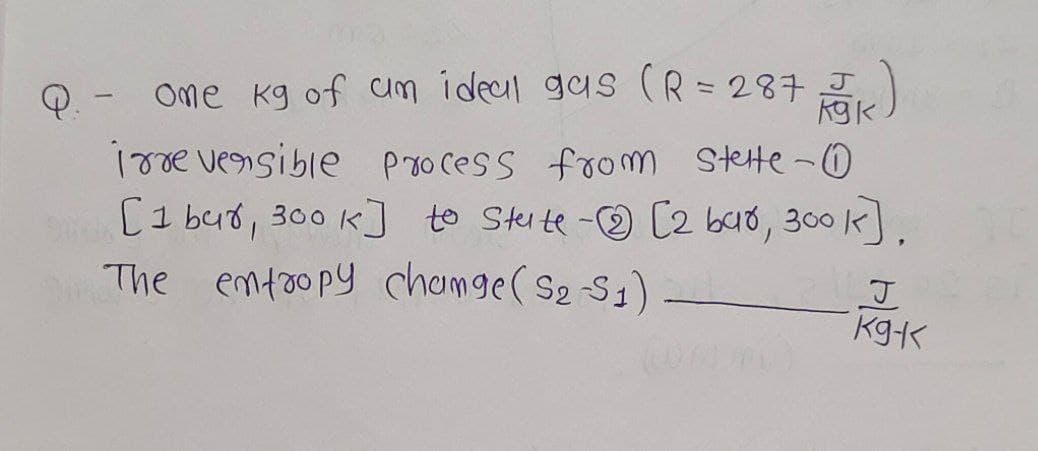 Q. - One kg of an ideal gas (R = 287 J/kgK)
irreversible process from State-①
[1 bar, 300 K] to State-② [2 bar, 300 K].
The entropy change (S2-S1) ______ J/kg-K